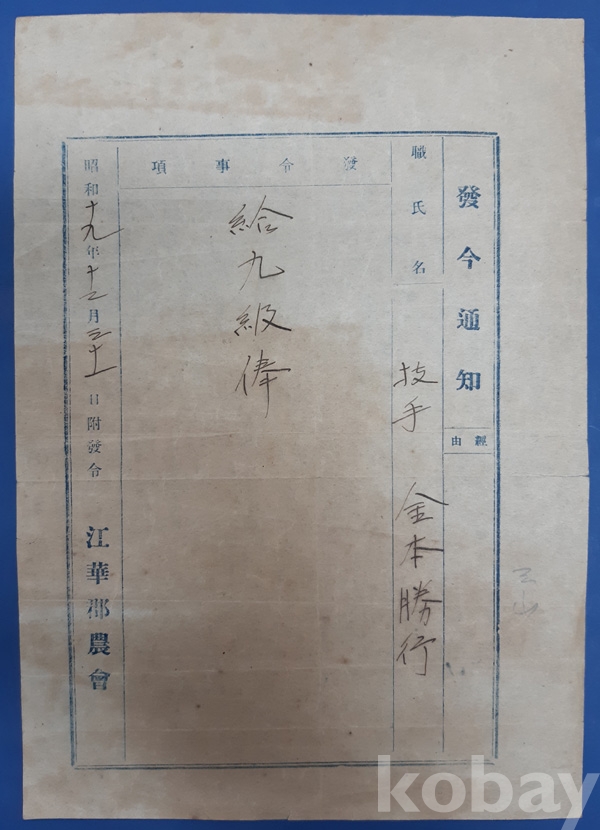 發令通知
經由
職氏名 技手 金本勝行
發令事項
給九級俸
昭和十九年十二月三十一日附發令
江華郡農會
kobay